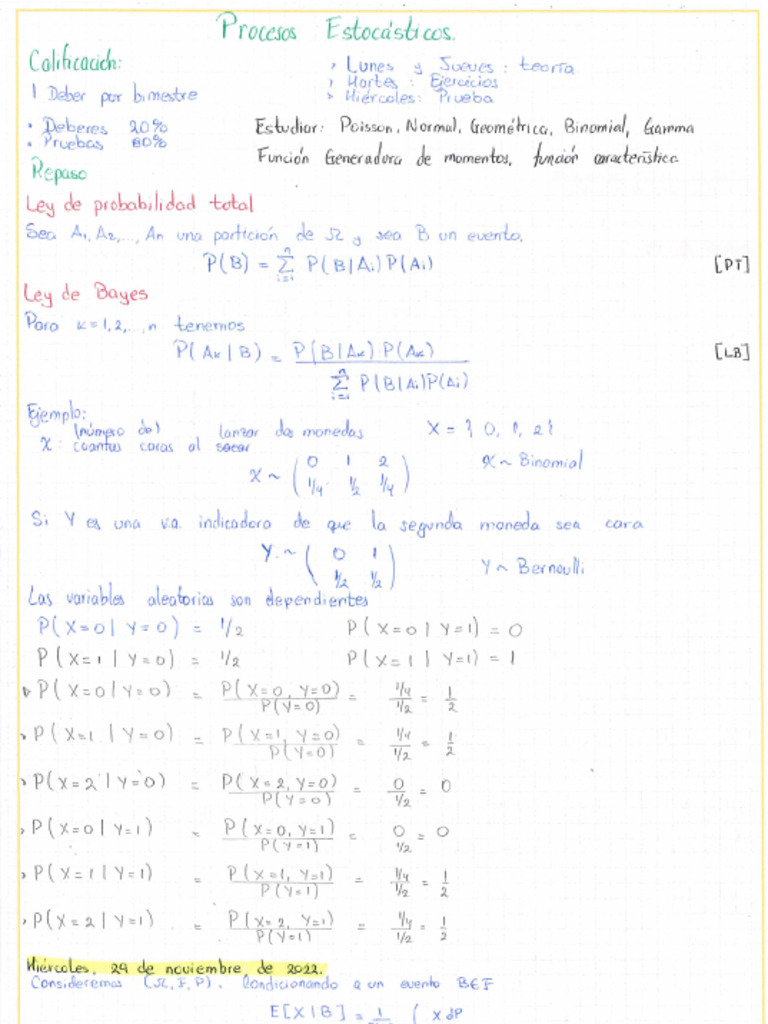 Procesos Estocásticos.
Calificación:
> Lunes y Jueves: teoría
> Martes: Ejercicios
> Miércoles: Prueba
1 Deber por bimestre
• Deberes 20%
• Pruebas 80%
Estudiar: Poisson, Normal, Geométrica, Binomial, Gamma
Función Generadora de momentos, función característica
Repaso
Ley de probabilidad total
Sea A₁, A₂, ..., An una partición de Ω y sea B un evento.
P(B) = Σⁿᵢ₌ᵢ P(B|Aᵢ) P(Aᵢ) [PT]
Ley de Bayes
Para κ = 1, 2, ..., n tenemos
P(Aκ|B) = P(B|Aκ) P(Aκ) / Σⁿᵢ₌ᵢ P(B|Aᵢ)P(Aᵢ) [LB]
Ejemplo:
(número de) lanzar dos monedas X = { 0, 1, 2 }
X: cuantas caras al sacar
X ~ ( 0 1 2 / 1/4 1/2 1/4 ) X ~ Binomial
Si Y es una v.a. indicadora de que la segunda moneda sea cara
Y ~ ( 0 1 / 1/2 1/2 ) Y ~ Bernoulli
Las variables aleatorias son dependientes
P(X=0|Y=0) = 1/2 P(X=0|Y=1) = 0
P(X=1|Y=0) = 1/2 P(X=1|Y=1) = 1
> P(X=0|Y=0) = P(X=0, Y=0)/P(Y=0) = 1/4 / 1/2 = 1/2
> P(X=1|Y=0) = P(X=1, Y=0)/P(Y=0) = 1/4 / 1/2 = 1/2
> P(X=2|Y=0) = P(X=2, Y=0)/P(Y=0) = 0 / 1/2 = 0
> P(X=0|Y=1) = P(X=0, Y=1)/P(Y=1) = 0 / 1/2 = 0
> P(X=1|Y=1) = P(X=1, Y=1)/P(Y=1) = 1/4 / 1/2 = 1/2
> P(X=2|Y=1) = P(X=2, Y=1)/P(Y=1) = 1/4 / 1/2 = 1/2
Miércoles, 29 de noviembre de 2022.
Consideremos (Ω, F, P). Condicionando a un evento B∈F
E[X|B] = 1 ∫ X dP